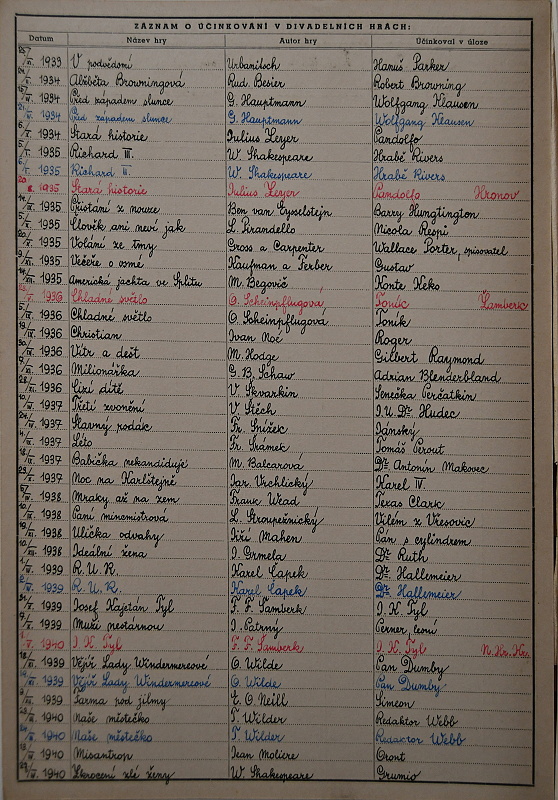 ZÁZNAM O ÚČINKOVÁNÍ V DIVADELNÍCH HRÁCH:
Datum Název hry Autor hry Účinkoval v úloze
1933 V podvědomí Urbanitsch Hanuš Parker
1934 Alžběta Browningová Rud. Besier Robert Browning
1934 Před západem slunce G. Hauptmann Wolfgang Klausen
1934 Před západem slunce G. Hauptmann Wolfgang Klausen
1934 Stará historie Julius Zeyer Pandolfo
1935 Richard III. W. Shakespeare Hrabě Rivers
1935 Richard W. Shakespeare Hrabě Rivers
1935 Stará historie Julius Zeyer Pandolfo Hronov
1935 Přistání z nouze Ben van Eysselstejn Barry Hungtington
1935 Člověk ani neví jak L. Pirandello Nicola Respi
1935 Volání ze tmy Gross a Carpenter Wallace Porter, spisovatel
1935 Večeře o osmé Kaufman a Ferber Gustav
1935 Americká jachta ve Splitu M. Begovič Konte Keko
1936 Chladné světlo O. Scheinpflugová Toník Žamberk
1936 Chladné světlo O. Scheinpflugová Toník
1936 Christian Ivan Noé Roger
1936 Vítr a déšť M. Hodge Gilbert Raymond
1936 Milionářka G. B. Schaw Adrian Blenderbland
1936 Cizí dítě V. Škvarkin Senečka Perčatkin
1937 Třetí zvonění V. Štech J. U. Dr. Hudec
1937 Slavný rodák Fr. Snížek Jánský
1937 Léto Fr. Šrámek Tomáš Perout
1937 Babička nekandiduje M. Balcarová Dr. Antonín Makovec
1937 Noc na Karlštejně Jar. Vrchlický Karel IV.
1938 Mraky až na zem Frank Wead Texas Clark
1938 Paní mincmistrová L. Stroupežnický Vilém z Vřesovic
1938 Ulička odvahy Jiří Mahen Pán s cylindrem
1938 Ideální žena J. Grmela Dr. Ruth
1939 R. U. R. Karel Čapek Dr. Hallemeier
1939 R. U. R. Karel Čapek Dr. Hallemeier
1939 Josef Kajetán Tyl F. F. Šamberk J. K. Tyl
1939 Muži nestárnou J. Patrný Perner,
1940 J. K. Tyl F. F. Šamberk J. K. Tyl N. Hr. Kr.
1939 Vějíř Lady Windermereové O. Wilde Pan Dumby
1939 Vějíř Lady Windermereové O. Wilde Pan Dumby
1939 Farma pod jilmy E. O. Neill Simeon
1940 Naše městečko T. Wilder Redaktor Webb
1940 Naše městečko T. Wilder Redaktor Webb
1940 Misantrop Jean Moliere Oront
1940 Zkrocení zlé ženy W. Shakespeare Grumio